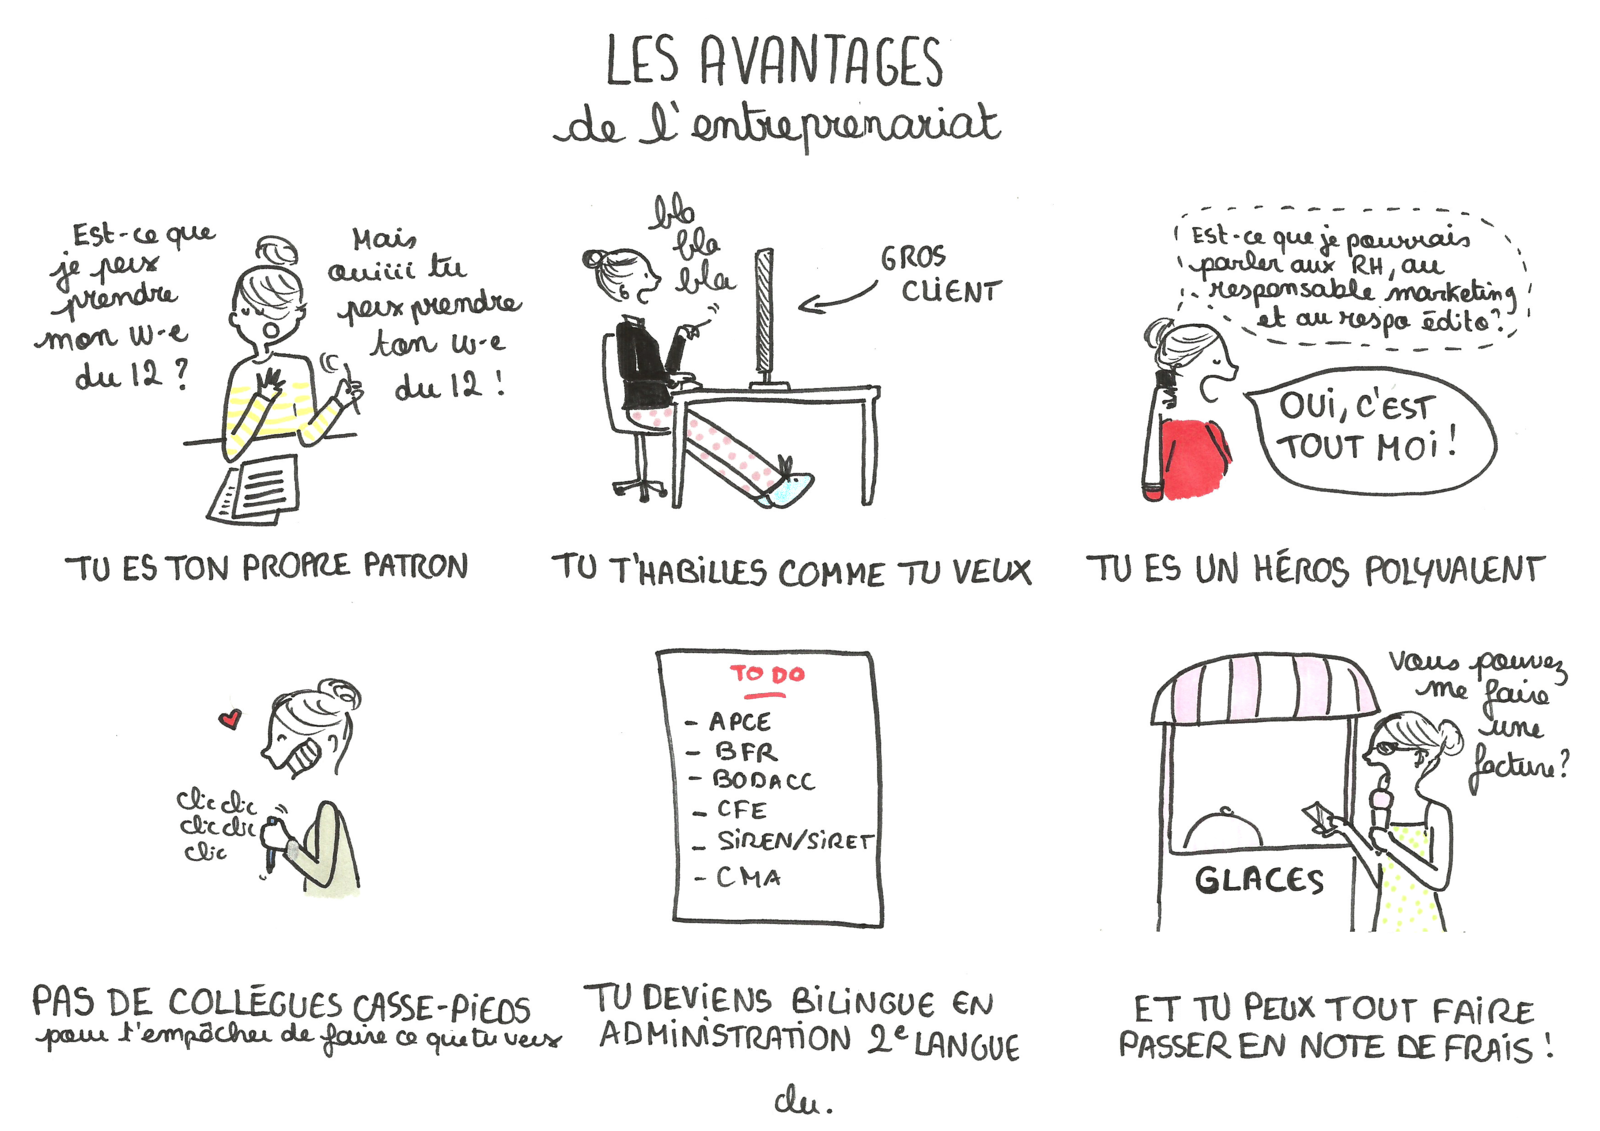 LES AVANTAGES
de l'entreprenariat
Est-ce que
je peux
prendre
mon w-e
du 12 ?
Mais
ouiiii tu
peux prendre
ton w-e
du 12 !
TU ES TON PROPRE PATRON
bla
bla
bla
GROS
CLIENT
TU T'HABILLES COMME TU VEUX
Est-ce que je pourrais
parler aux RH, au
responsable marketing
et au respo édito ?
OUI, C'EST
TOUT MOI !
TU ES UN HÉROS POLYVALENT
clic clic
clic clic
clic
PAS DE COLLÈGUES CASSE-PIEDS
pour t'empâcher de faire ce que tu veux
TO DO
- APCE
- BFR
- BODACC
- CFE
- SIREN/SIRET
- CMA
TU DEVIENS BILINGUE EN
ADMINISTRATION 2e LANGUE
Vous pouvez
me faire
une
facture ?
GLACES
ET TU PEUX TOUT FAIRE
PASSER EN NOTE DE FRAIS !